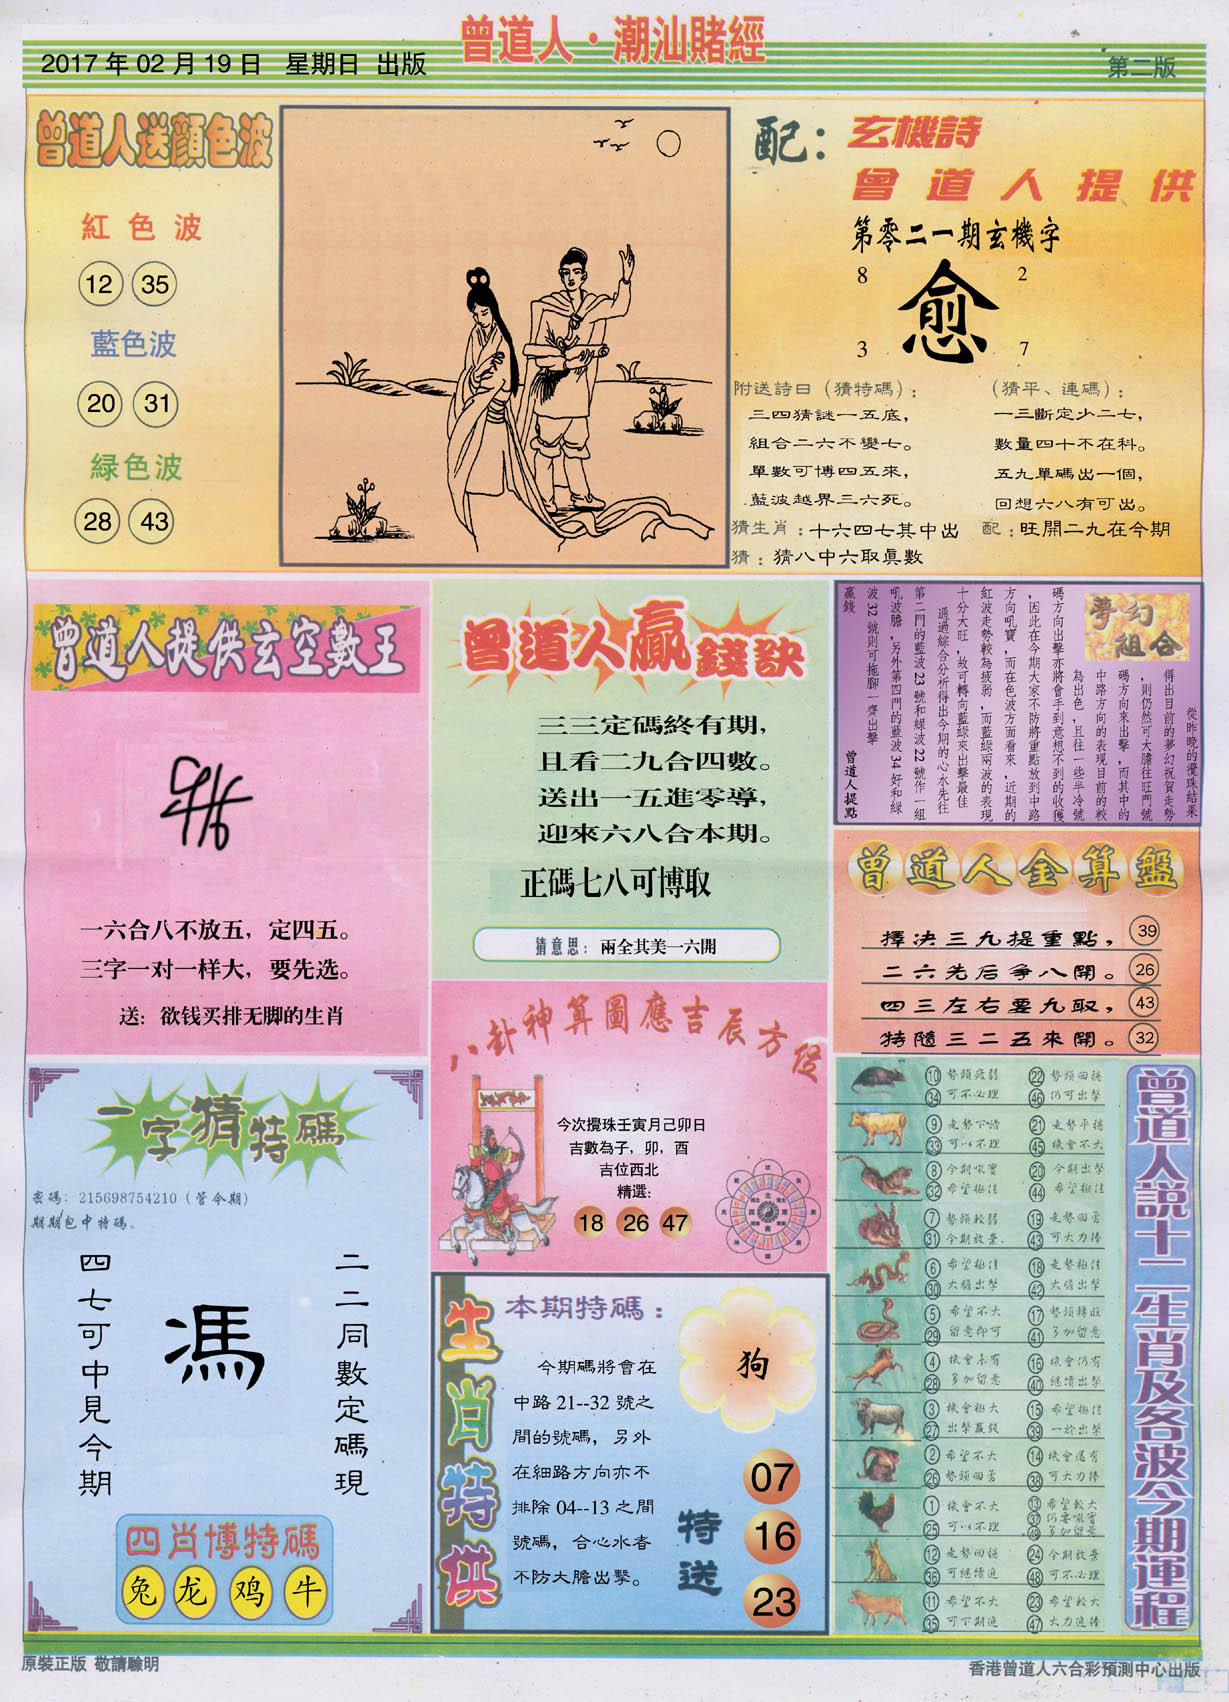 曾道人·潮汕賭經
2017年02月19日 星期日 出版
第二版
曾道人送顔色波
紅色波
12 35
藍色波
20 31
緑色波
28 43
配：玄機詩
曾道人提供
第零二一期玄機字
8 2
愈
3 7
附送詩曰（猜特碼）：
三四猜謎一五底，
組合二六不變七。
單數可博四五來，
藍波越界三六死。
（猜平、連碼）：
一三斷定少二七，
數量四十不在科。
五九單碼出一個，
回想六八有可出。
猜生肖：十六四七其中出
配：旺開二九在今期
猜：猜八中六取眞數
曾道人提供玄空數王
一六合八不放五，定四五。
三字一对一样大，要先选。
送：欲钱买排无脚的生肖
曾道人贏錢訣
三三定碼終有期，
且看二九合四數。
送出一五進零導，
迎來六八合本期。
正碼七八可博取
猜意思：兩全其美一六開
夢幻組合
從昨晚的攪珠結果
得出目前的夢幻祝賀走勢
，則仍然可大膽往旺門號
碼方向來出擊，而其中的
中路方向的表現目前的較
為出色，且往一些半冷號
碼方向出擊亦將會手到意想不到的收獲
，因此在今期大家不防將重點放到中路
方向吼寶，而在色波方面看來，近期的
紅波走勢較為疲弱，而藍綠兩波的表現
十分大旺，故可轉向藍綠來出擊最佳
通過綜合分析得出今期的心水先往
第二門的藍波23號和綠波22號作一組
吼波膽，另外第四門的藍波34好和綠
波32號則可拖腳一齊出擊
贏錢
曾道人提點
曾道人金算盤
擇決三九提重點， 39
二六先后爭八開。 26
四三左右要九取， 43
特隨三二五來開。 32
八卦神算圖應吉辰方位
今次攪珠壬寅月己卯日
吉數為子，卯，酉
吉位西北
精選：
18 26 47
一字猜特碼
密碼：215698754210（管今期）
期期包中特碼。
二二同數定碼現
馮
四七可中見今期
四肖博特碼
兔 龙 鸡 牛
生肖特供
本期特碼：
狗
今期碼將會在
中路21--32號之
間的號碼，另外
在細路方向亦不
排除04--13之間
號碼，合心水者
不防大膽出擊。
特送
07
16
23
曾道人説十二生肖及各波今期運程
10 勢頭疲弱 22 勢頭回穩
34 可不必理 46 仍可出擊
9 走勢下滑 21 走勢平穩
33 可以不理 45 機會不大
8 今期吼寶 20 今期出擊
32 希望極佳 44 希望極佳
7 勢頭較弱 19 走勢回勇
31 今期放棄 43 可大力捧
6 希望極佳 18 走勢極佳
30 大膽出擊 42 大膽出擊
5 希望不大 17 勢頭轉旺
29 留意即可 41 多加留意
4 機會未有 16 機會仍有
28 多加留意 40 繼續出擊
3 機會極大 15 希望極佳
27 出擊贏錢 39 一於出擊
2 希望不大 14 機會還有
26 勢頭回勇 38 可大力捧
1 機會不大 13 希望較大
25 可以不理 37 仍要吼寶
49 多加留意
12 走勢回穩 24 今期放棄
36 可繼續追 48 可不必理
11 希望不大 23 希望較大
35 可下期追 47 大力追捧
原裝正版 敬請驗明
香港曾道人六合彩預測中心出版